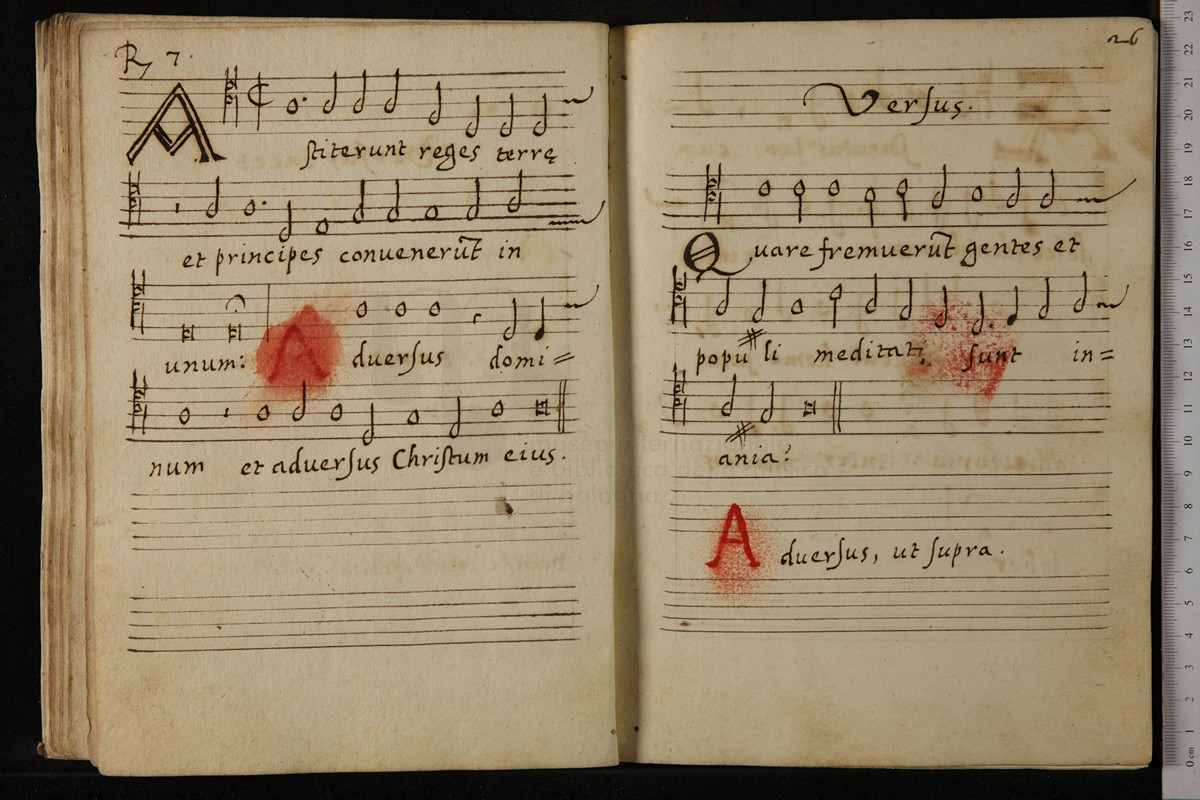 R 7.
Astiterunt reges terrę
et principes conuenerūt in
unum: Aduersus domi=
num et aduersus Christum eius.
26
Versus.
Quare fremuerūt gentes et
populi meditati sunt in=
ania?
Aduersus, ut supra.
museo internazionale
e biblioteca della musica
di bologna